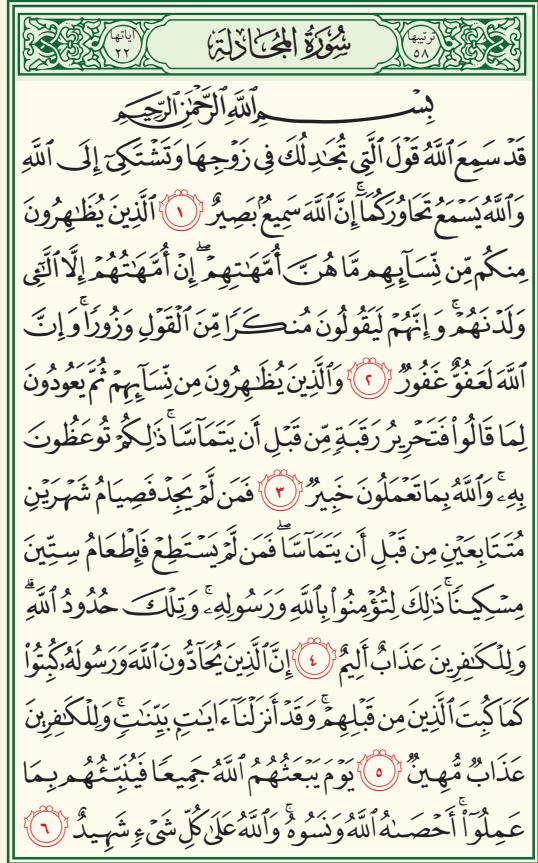 ترتيبها ٥٨ سُورَةُ المُجَادلَةِ آياتها ٢٢
بِسْمِ ٱللَّهِ ٱلرَّحْمَٰنِ ٱلرَّحِيمِ
قَدْ سَمِعَ ٱللَّهُ قَوْلَ ٱلَّتِى تُجَٰدِلُكَ فِى زَوْجِهَا وَتَشْتَكِىٓ إِلَى ٱللَّهِ
وَٱللَّهُ يَسْمَعُ تَحَاوُرَكُمَآ ۚ إِنَّ ٱللَّهَ سَمِيعٌۢ بَصِيرٌ ١ ٱلَّذِينَ يُظَٰهِرُونَ
مِنكُم مِّن نِّسَآئِهِم مَّا هُنَّ أُمَّهَٰتِهِمْ ۖ إِنْ أُمَّهَٰتُهُمْ إِلَّا ٱلَّٰٓـِٔى
وَلَدْنَهُمْ ۚ وَإِنَّهُمْ لَيَقُولُونَ مُنكَرًا مِّنَ ٱلْقَوْلِ وَزُورًا ۚ وَإِنَّ
ٱللَّهَ لَعَفُوٌّ غَفُورٌ ٢ وَٱلَّذِينَ يُظَٰهِرُونَ مِن نِّسَآئِهِمْ ثُمَّ يَعُودُونَ
لِمَا قَالُوا۟ فَتَحْرِيرُ رَقَبَةٍ مِّن قَبْلِ أَن يَتَمَآسَّا ۚ ذَٰلِكُمْ تُوعَظُونَ
بِهِۦ ۚ وَٱللَّهُ بِمَا تَعْمَلُونَ خَبِيرٌ ٣ فَمَن لَّمْ يَجِدْ فَصِيَامُ شَهْرَيْنِ
مُتَتَابِعَيْنِ مِن قَبْلِ أَن يَتَمَآسَّا ۖ فَمَن لَّمْ يَسْتَطِعْ فَإِطْعَامُ سِتِّينَ
مِسْكِينًا ۚ ذَٰلِكَ لِتُؤْمِنُوا۟ بِٱللَّهِ وَرَسُولِهِۦ ۚ وَتِلْكَ حُدُودُ ٱللَّهِ ۗ
وَلِلْكَٰفِرِينَ عَذَابٌ أَلِيمٌ ٤ إِنَّ ٱلَّذِينَ يُحَآدُّونَ ٱللَّهَ وَرَسُولَهُۥ كُبِتُوا۟
كَمَا كُبِتَ ٱلَّذِينَ مِن قَبْلِهِمْ ۚ وَقَدْ أَنزَلْنَآ ءَايَٰتٍۭ بَيِّنَٰتٍ ۚ وَلِلْكَٰفِرِينَ
عَذَابٌ مُّهِينٌ ٥ يَوْمَ يَبْعَثُهُمُ ٱللَّهُ جَمِيعًا فَيُنَبِّئُهُم بِمَا
عَمِلُوٓا۟ ۚ أَحْصَىٰهُ ٱللَّهُ وَنَسُوهُ ۚ وَٱللَّهُ عَلَىٰ كُلِّ شَىْءٍ شَهِيدٌ ٦